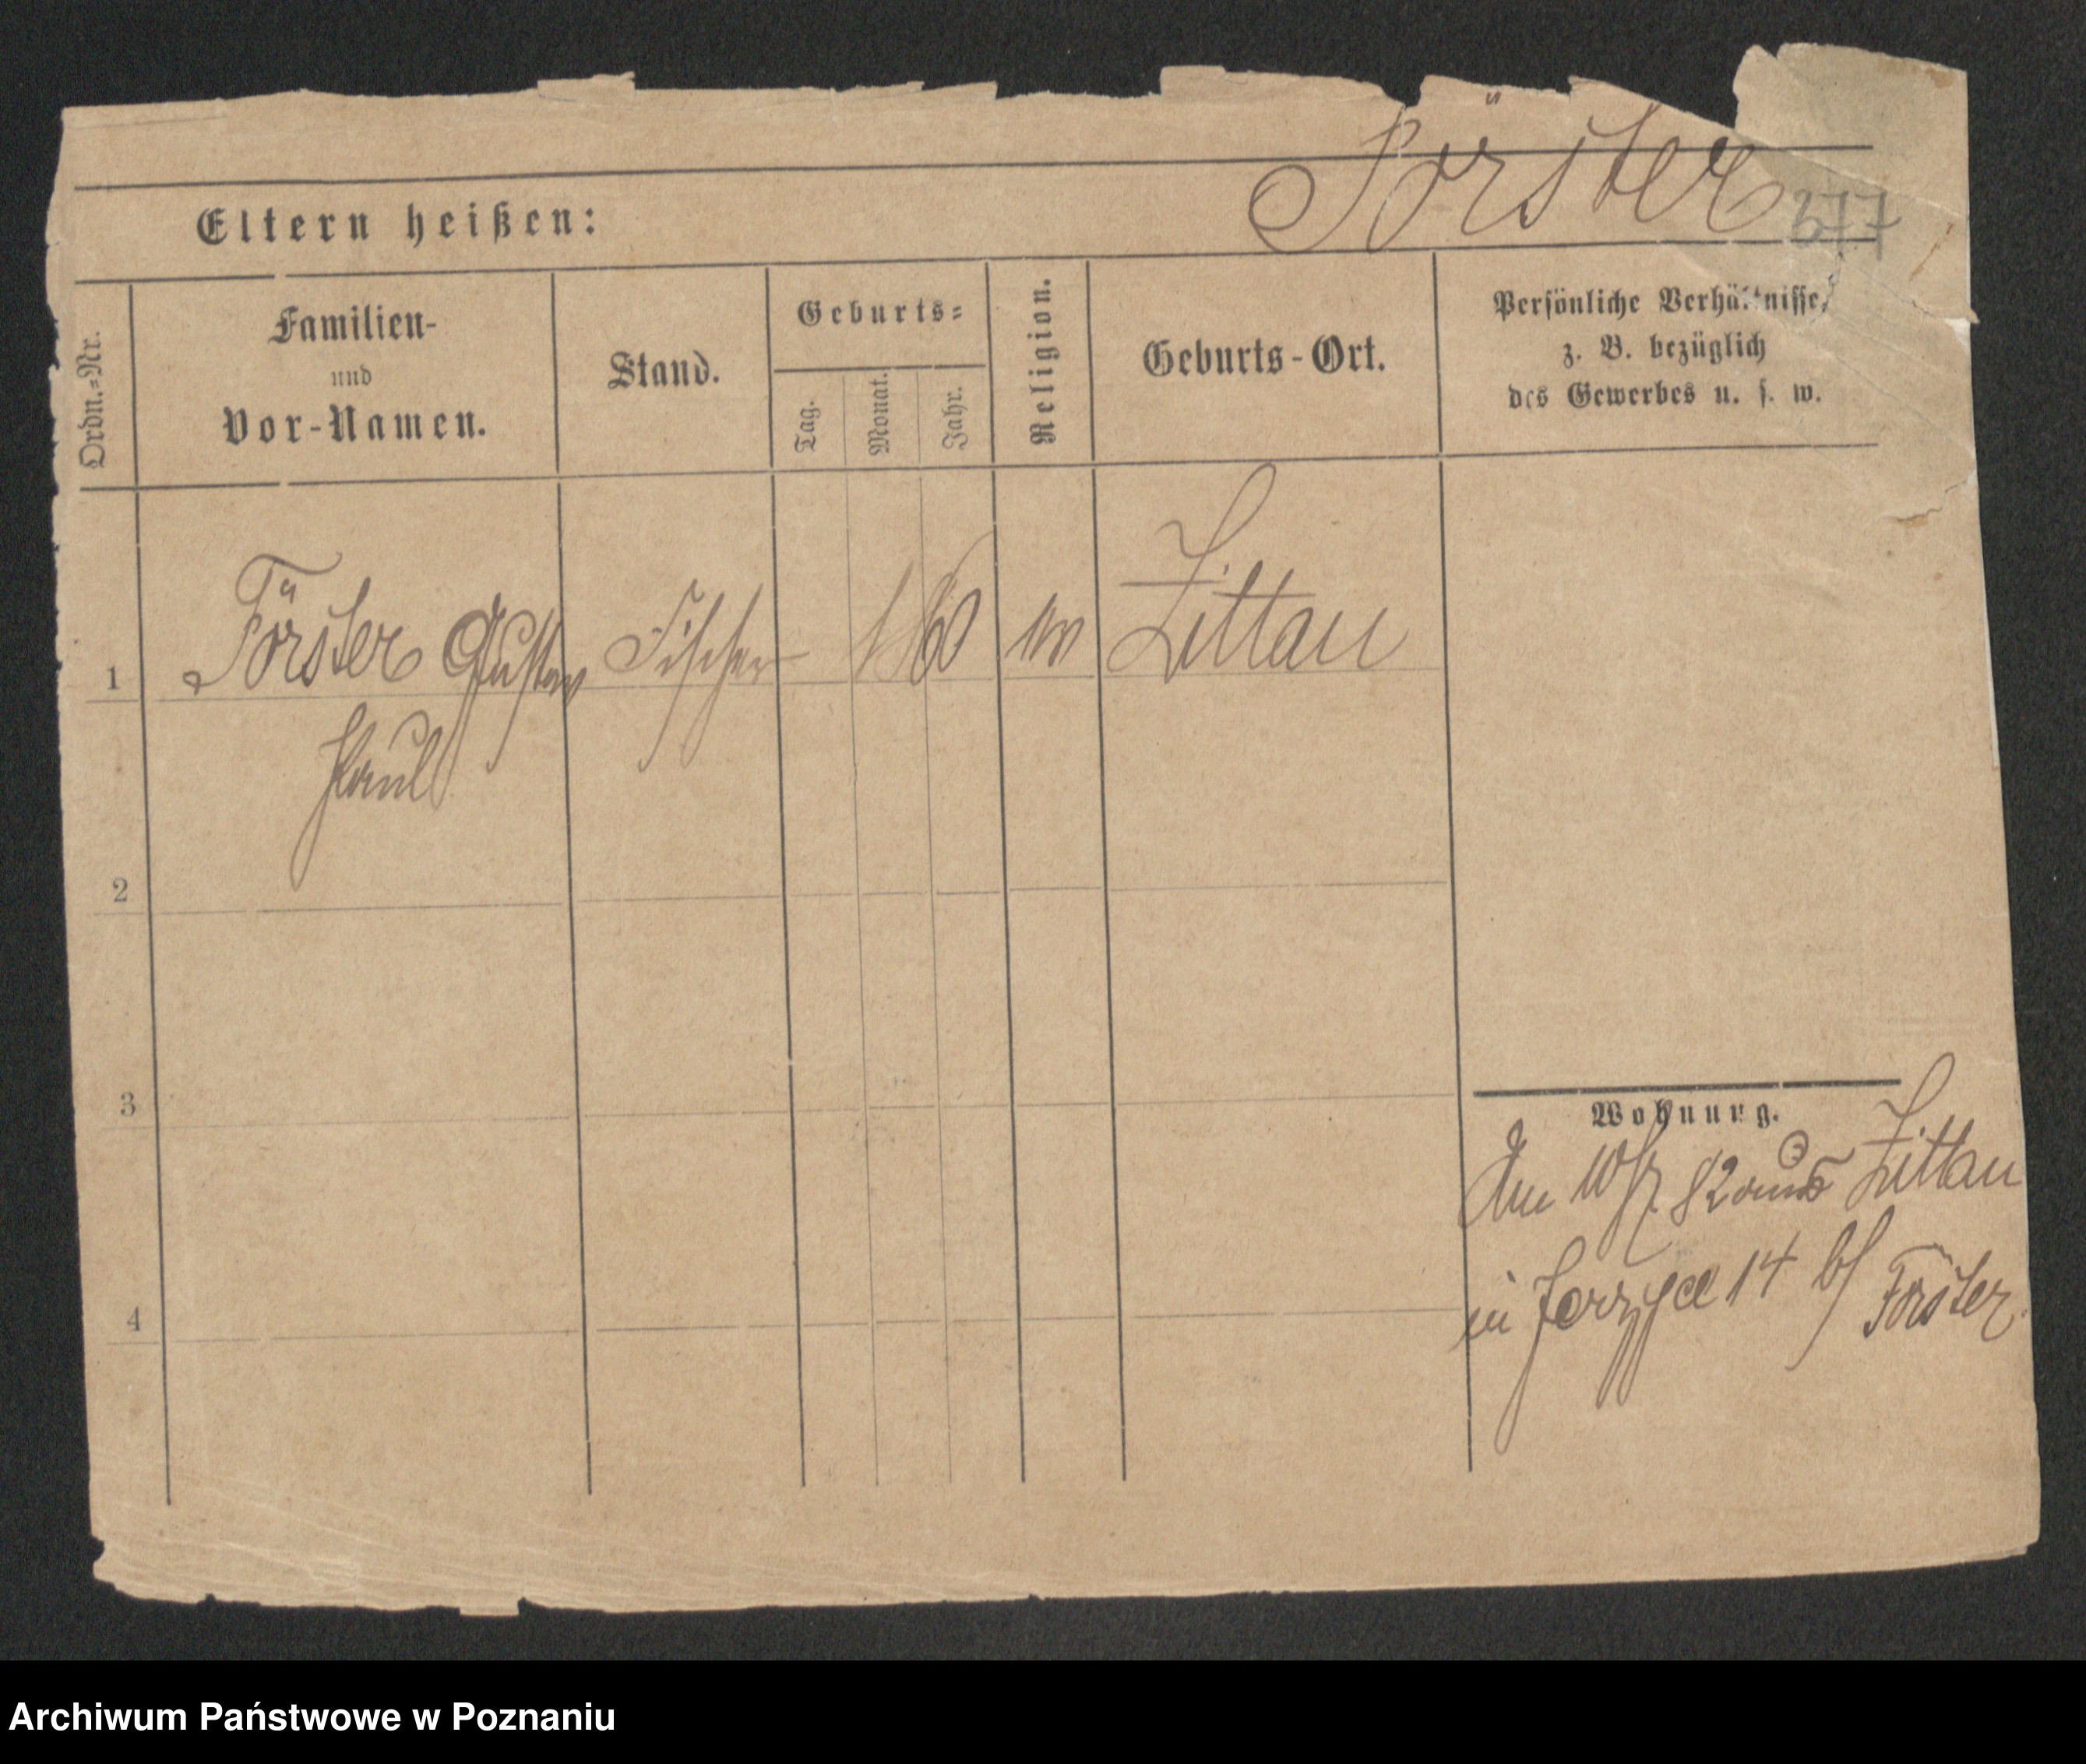 Förster
377
Eltern heißen:
Ordn.=Nr.
Familien-
und
Vor-Namen.
Stand.
Geburts=
Tag.
Monat.
Jahr.
Religion.
Geburts-Ort.
Persönliche Verhältnisse,
z. B. bezüglich
des Gewerbes u. s. w.
1 Förster Gustav Fischer Zittau
Paul
2
3
4
Wohnung.
Am 10/7 82 aus Zittau
in Jerzyce 14 b/ Förster.
Archiwum Państwowe w Poznaniu